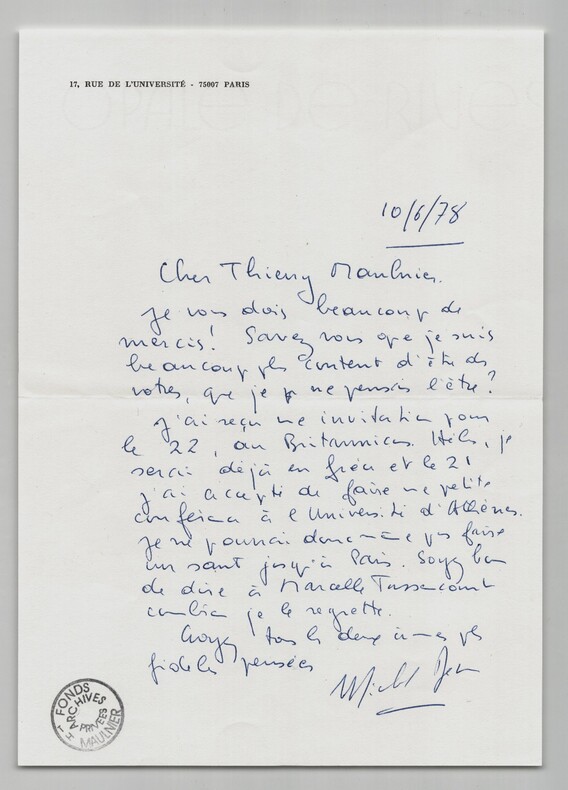 17, RUE DE L'UNIVERSITÉ - 75007 PARIS
10/6/78
Cher Thierry Maulnier.
Je vous dois beaucoup de
mercis! Savez vous que je suis
beaucoup plus content d'être des
vôtres, que je ne pensais l'être?
J'ai reçu une invitation pour
le 22, au Britannicus. Hélas, je
serai déjà en Grèce et le 21
j'ai accepté de faire une petite
conférence à l'Université d'Athènes.
Je ne pourrai donc même pas faire
un saut jusqu'à Paris. Soyez bon
de dire à Marcelle Tassencourt
combien je le regrette.
Croyez tous les deux à mes plus
fidèles pensées
Michel Déon
FONDS
D'ARCHIVES
PRIVÉES
MAULNIER